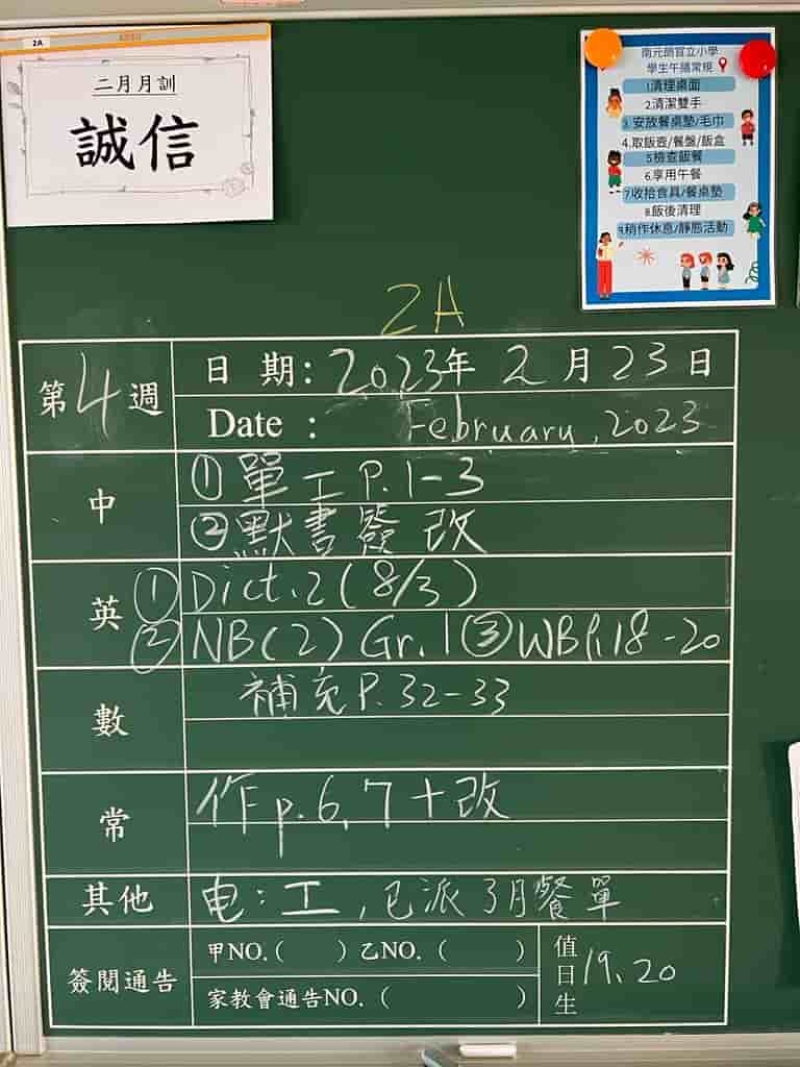 2A
二月月訓
誠信
南元朗官立小學
學生午膳常規
1.清理桌面
2.清潔雙手
3.安放餐桌墊/毛巾
4.取飯壺/餐盤/飯盒
5.檢查飯餐
6.享用午餐
7.收拾食具/餐桌墊
8.飯後清理
9.稍作休息/靜態活動
2A
第4週
日期：2023年2月23日
Date : February, 2023
中
①單工 P.1-3
②默書簽改
英
①Dict.2(8/3)
②NB(2) Gr.1 ③WB P.18-20
數
補充P.32-33
常
作p.6,7+改
其他
电：工,已派3月餐單
簽閱通告
甲NO.( ) 乙NO.( )
家教會通告NO.( )
值日生
19、20